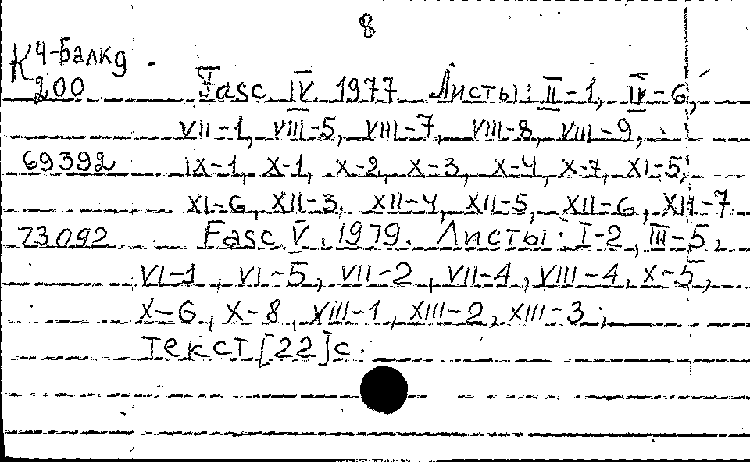 8
К4-Балкд
200 Fasc IV. 1977 Листы: II-1, IV-6,
VII-1, VIII-5, VIII-7, VIII-8, VIII-9,
69392 IX-1, X-1, X-2, X-3, X-4, X-7, XI-5,
XI-6, XII-3, XII-4, XII-5, XII-6, XII-7
73092 Fasc V. 1979. Листы: I-2, III-5,
VI-1, VI-5, VII-2, VII-4, VIII-4, X-5,
X-6, X-8, XIII-1, XIII-2, XIII-3;
Текст [22] с.